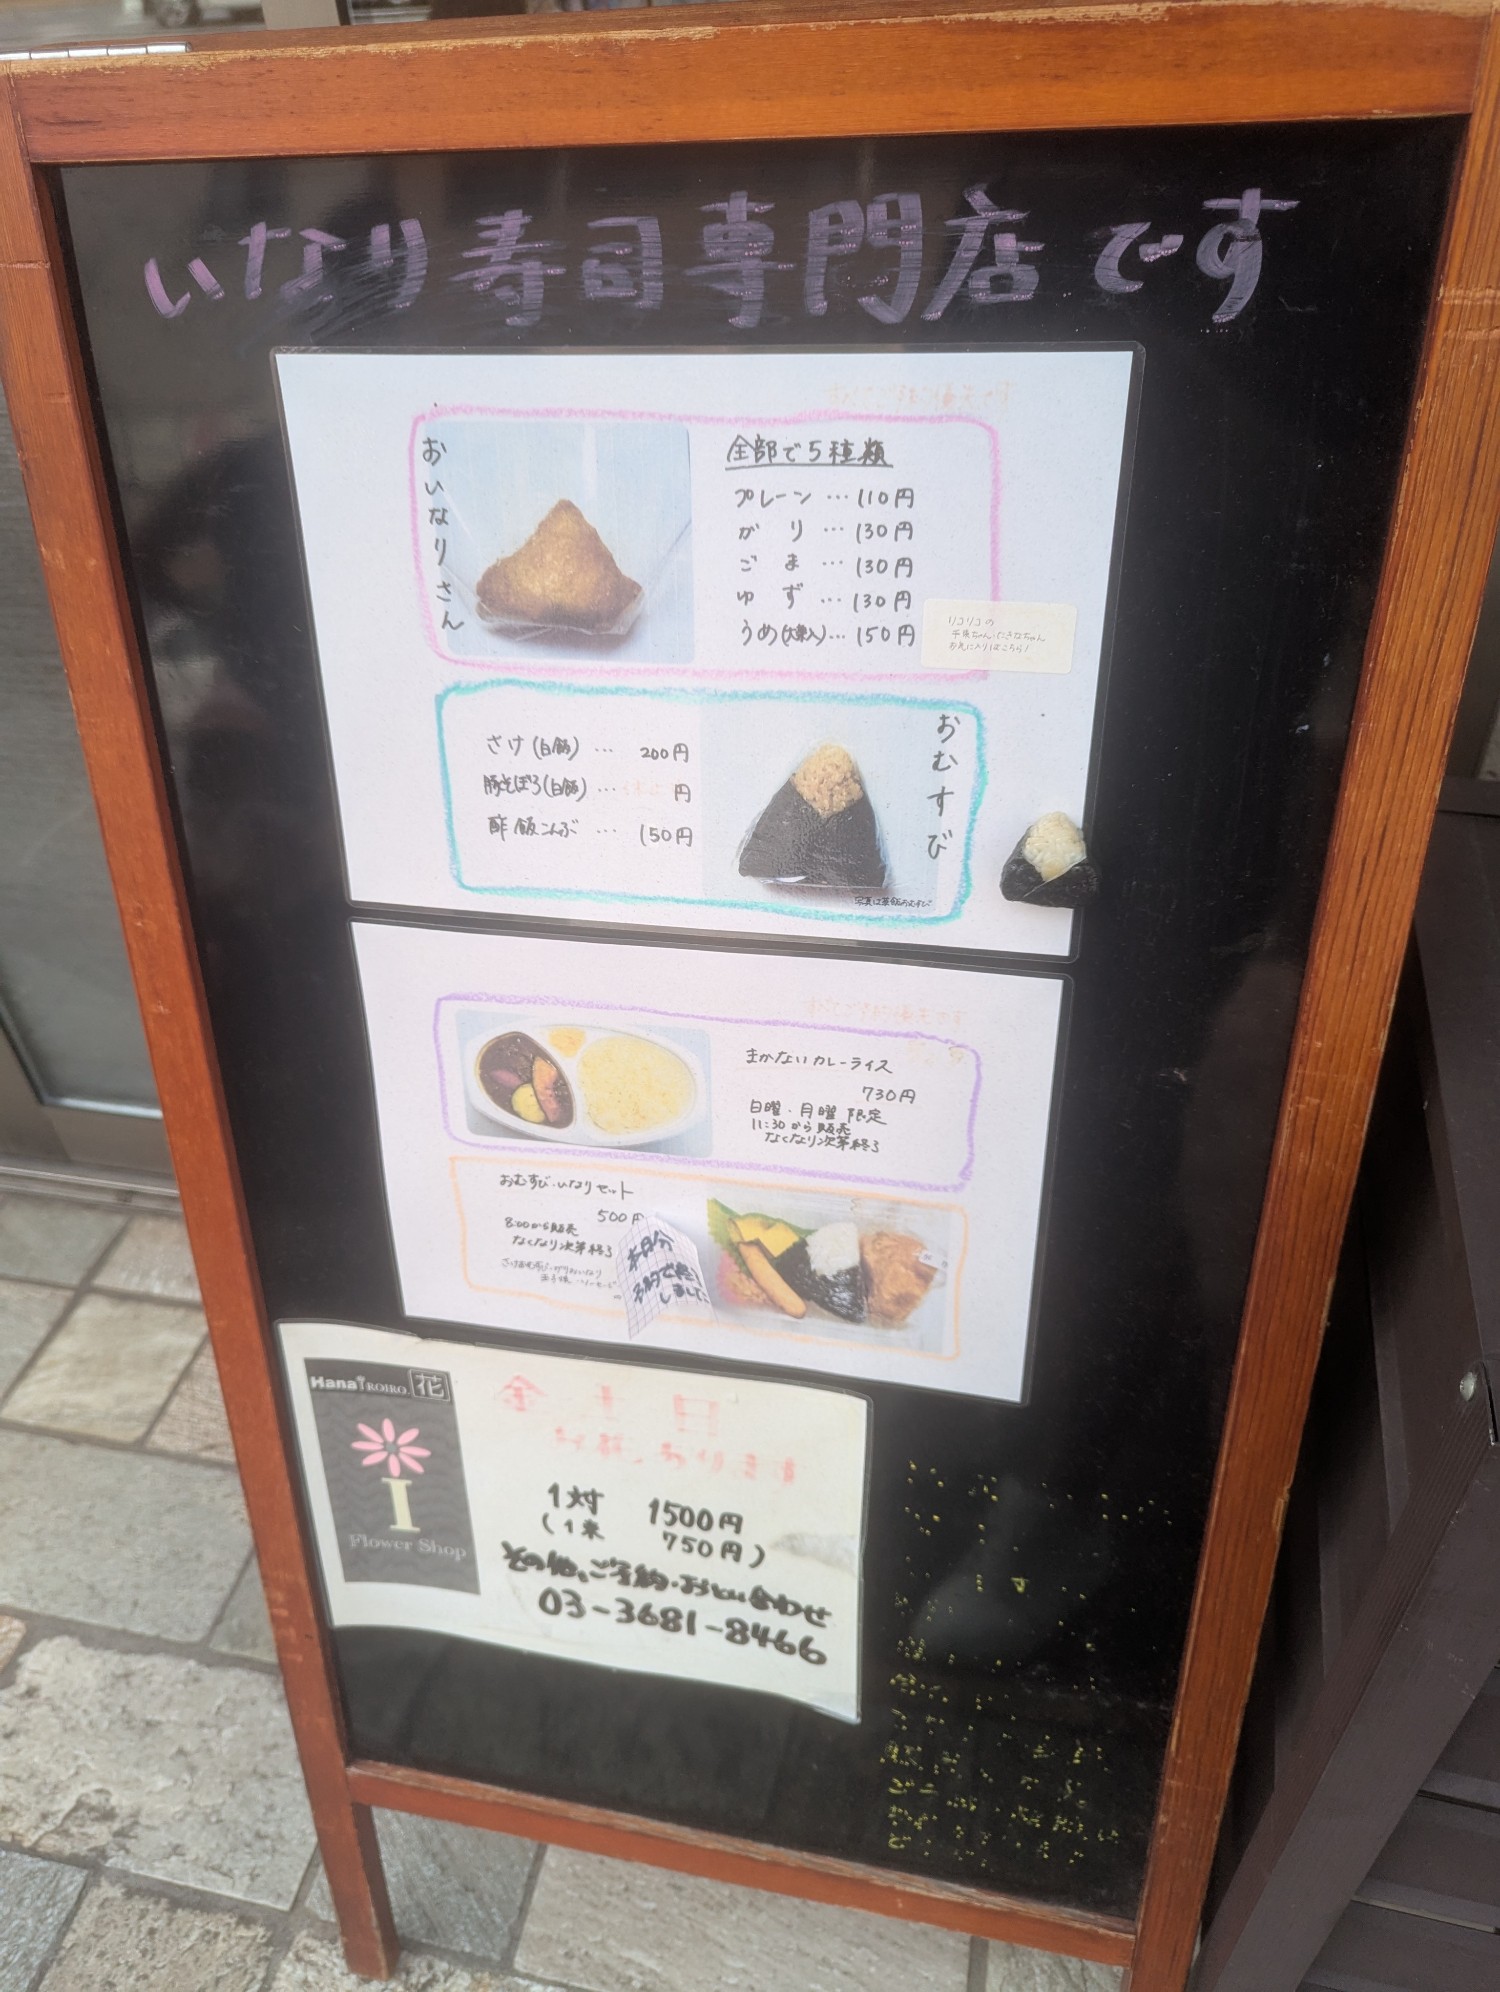 いなり寿司専門店です
おいなりさん
全部で5種類
プレーン…110円
がり…130円
ごま…130円
ゆず…130円
うめ(大葉入)…150円
リコリコの
千束ちゃん・たきなちゃん
お気に入りはこちら!
おむすび
さけ(白飯)…200円
豚そぼろ(白飯)…円
酢飯こんぶ…150円
写真は茶飯おむすび
まかないカレーライス
730円
日曜・月曜 限定
11:30から販売
なくなり次第終了
おむすび・いなりセット
500円
8:00から販売
なくなり次第終了
本日分
予約で終了
しました
HanaIROIRO. 花
I
Flower Shop
1対 1500円
(1束 750円)
その他、ご予約・お問い合わせ
03-3681-8466